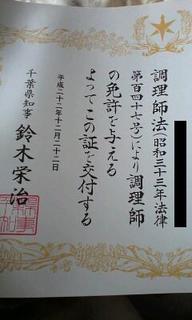 調理師法(昭和三十三年法律
第百四十七号)により調理師
の免許を与える
よってこの証を交付する
平成二十二年十二月二十二日
千葉県知事 鈴木栄治